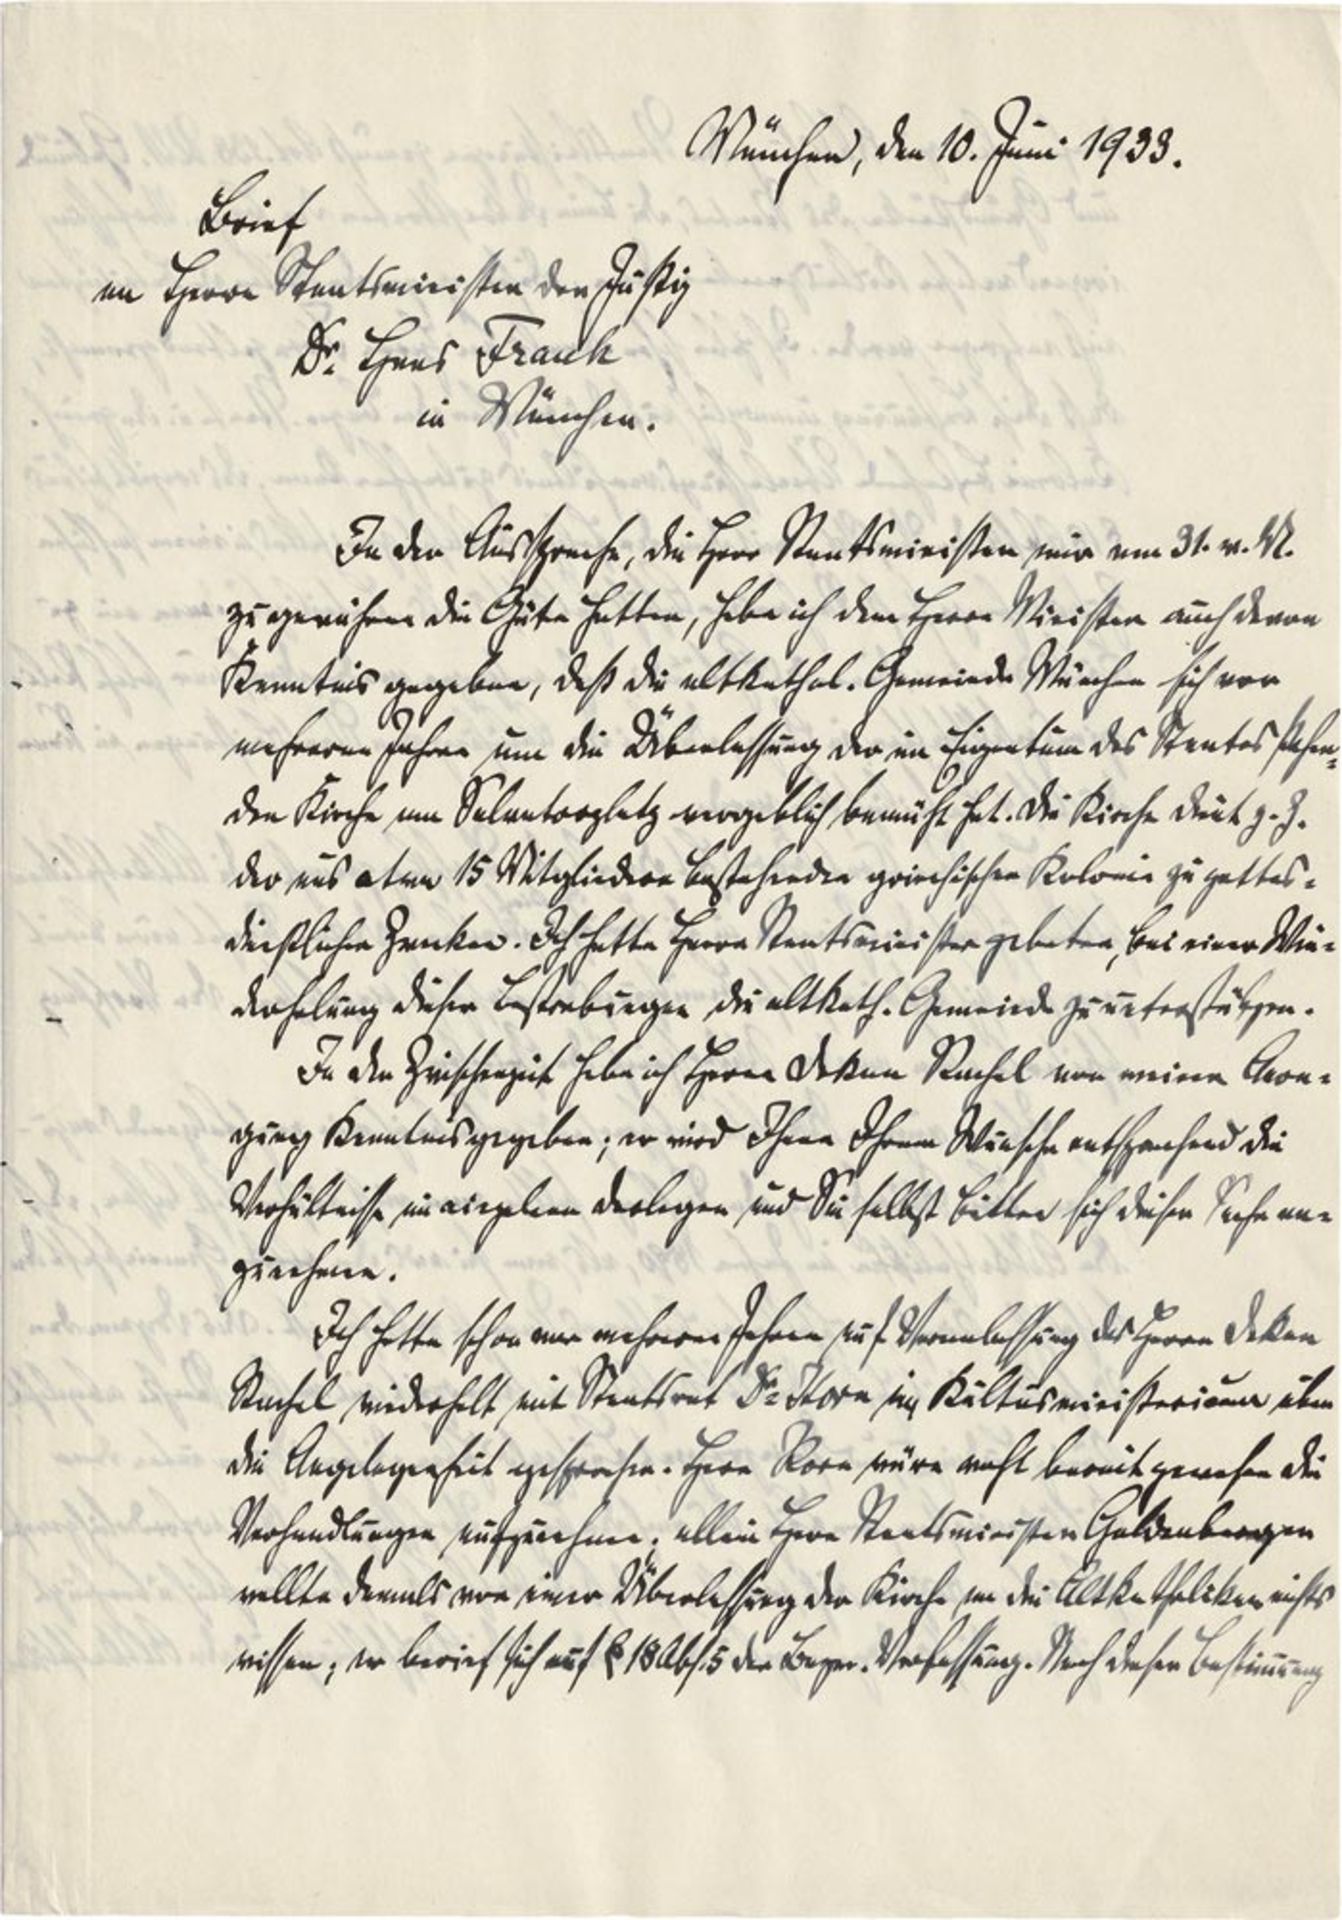 München, den 10. Juni 1933.
Brief
an Herrn Staatsminister der Justiz
Dr. Hans Frank
in München.
In der Aussprache, die Herr Staatsminister mir am 31. v. M.
zu gewähren die Güte hatten, habe ich dem Herrn Minister auch davon
Kenntnis gegeben, daß die altkathol. Gemeinde München sich vor
mehreren Jahren um die Überlassung der im Eigentum des Staates stehen-
den Kirche am Salvatorplatz vergeblich bemüht hat. Die Kirche dient z. Z.
der aus etwa 15 Mitgliedern bestehenden griechischen Kolonie zu gottes-
dienstlichen Zwecken. Ich hatte Herrn Staatsminister gebeten, bei einer Wie-
derholung dieser Bestrebungen die altkath. Gemeinde zu unterstützen.
In der Zwischenzeit habe ich Herrn Dekan Rachel von meiner Anre-
gung Kenntnis gegeben; er wird Ihnen Ihrem Wunsche entsprechend die
Verhältnisse im einzelnen darlegen und Sie selbst bitten sich dieser Sache an-
zunehmen.
Ich hatte schon vor mehreren Jahren auf Veranlassung des Herrn Dekan
Rachel wiederholt mit Staatsrat Dr. Korn im Kultusministerium über
die Angelegenheit gesprochen. Herr Korn wäre wohl bereit gewesen die
Verhandlungen aufzunehmen; allein Herr Staatsminister Goldenberger
wollte damals von einer Überlassung der Kirche an die Altkatholiken nichts
wissen; er berief sich auf § 18 Abs. 5 der Bayer. Verfassung. Nach dieser Bestimmung